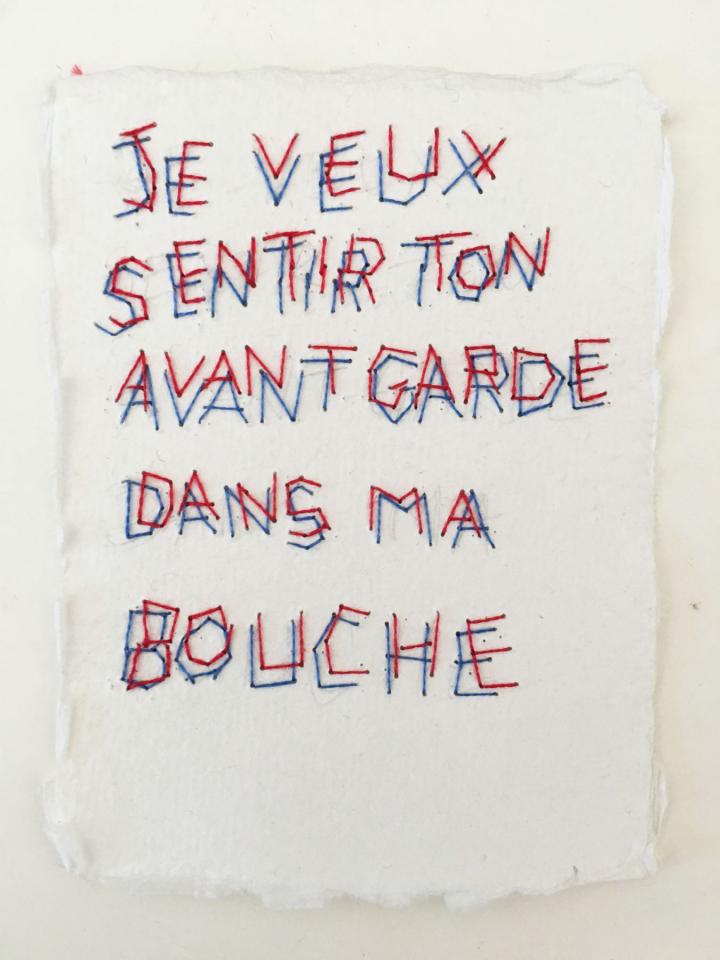 JE VEUX
SENTIR TON
AVANT GARDE
DANS MA
BOUCHE